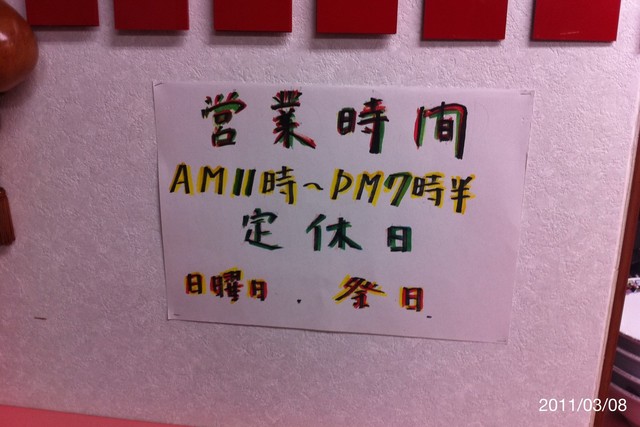 営業時間
AM11時～PM7時半
定休日
日曜日．祭日．
2011/03/08